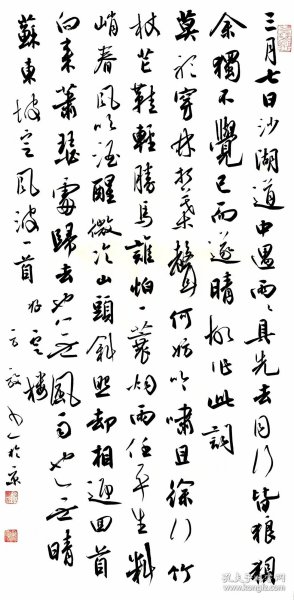 三月七日沙湖道中遇雨々具先去同行皆狼狽
余獨不覺已而遂晴故作此詞
莫聽穿林打葉聲何妨吟嘯且徐行竹
杖芒鞋輕勝馬誰怕一蓑烟雨任平生料
峭春風吹酒醒微冷山頭斜照却相迎回首
向來蕭瑟處歸去也无風雨也无晴
蘇東坡定風波一首
於京
孔夫子旧书网